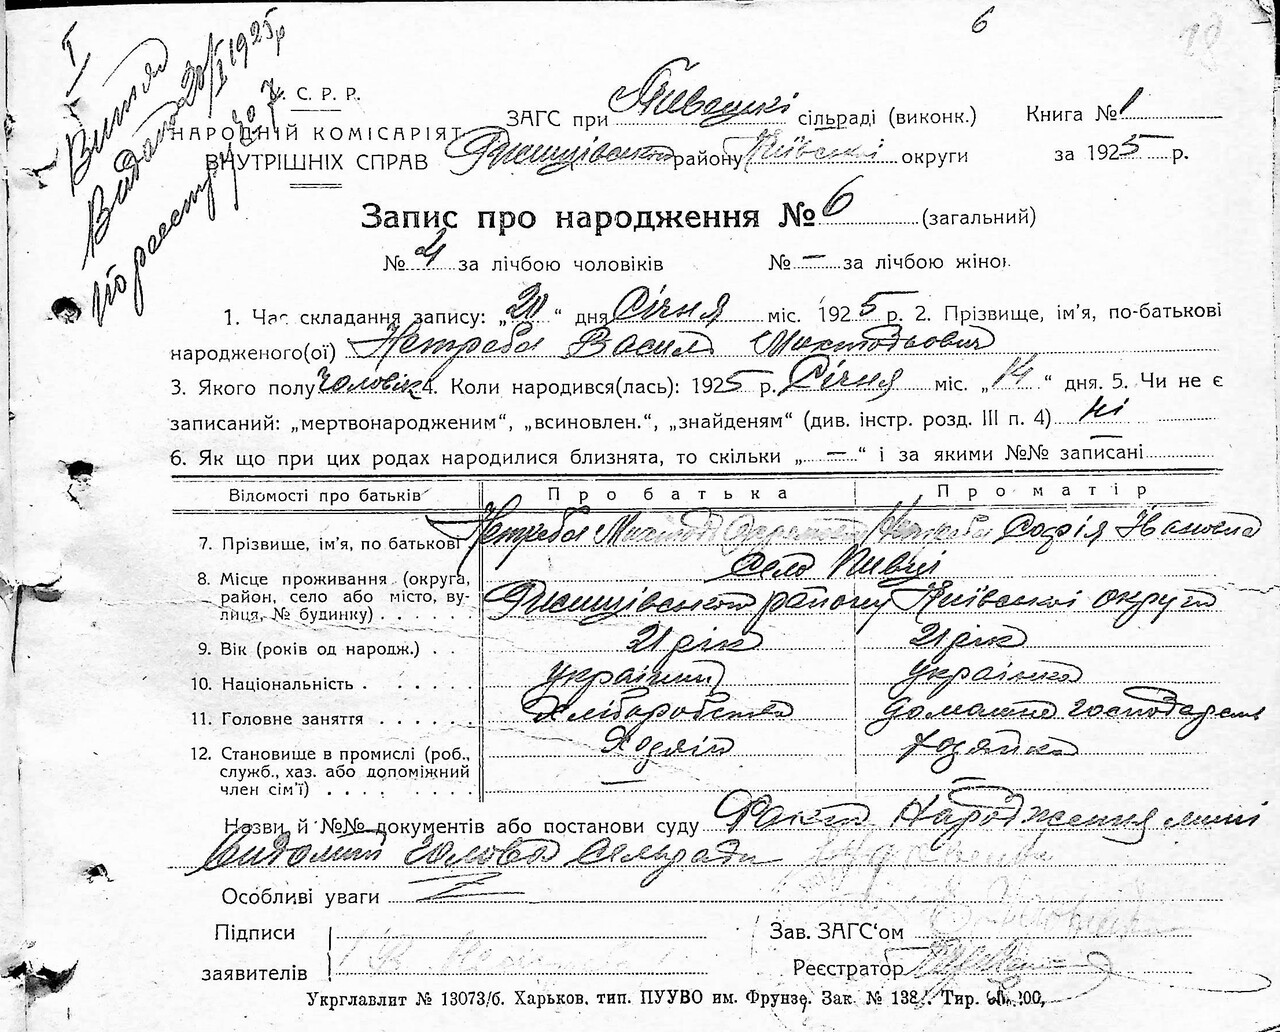 6
18
I
Витяг
Видано 20/I 1925 р
по реестру за № 7
. С. Р. Р.
НАРОДНІЙ КОМІСАРІЯТ
ВНУТРІШНІХ СПРАВ
ЗАГС при сільраді (виконк.) Книга № 1
району Київської округи за 1925 р.
Запис про народження № 6 (загальний)
№ 4 за лічбою чоловіків № — за лічбою жіно
1. Час складання запису: „20“ дня Січня міс. 1925 р. 2. Прізвище, ім'я, по-батькові
народженого(ої) Нетреба Василь
3. Якого полу Чоловік 4. Коли народився(лась): 1925 р. Січня міс. „14“ дня. 5. Чи не є
записаний: „мертвонародженим“, „всиновлен.“, „знайденям“ (див. інстр. розд. III п. 4) ні
6. Як що при цих родах народилися близнята, то скільки „—“ і за якими №№ записані —
Відомості про батьків Про батька Про матір
7. Прізвище, ім'я, по батькові Нетреба Нетреба Софія Івановна
8. Місце проживання (округа, район, село або місто, вулиця, № будинку) Село Пивці
району Київської округи
9. Вік (років од народж.) 21 рік 21 рік
10. Національність українець українка
11. Головне заняття Хліборобство домашнє господарств
12. Становище в промислі (роб., служб., хаз. або допоміжний член сім'ї) Хозяїн хозяйка
—
Назви й №№ документів або постанови суду Факт Народження мині
Видомий Голова Сельради
Особливі уваги
Підписи
заявителів
Зав. ЗАГС'ом
Реєстратор
Укрглавлит № 13073/б. Харьков, тип. ПУУВО им. Фрунзе. Зак. № 138 . Тир. 00,